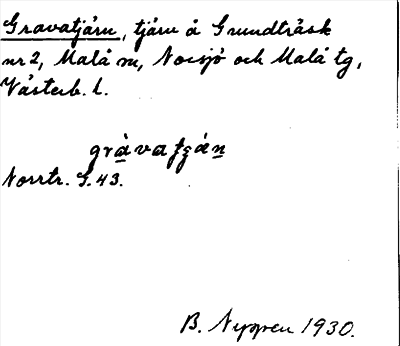 Gravatjärn, tjärn å Grundträsk
nr 2, Malå sn, Norsjö och Malå tg,
Västerb. l.
gràvatʒǽn
Norrtr. S. 43.
B. Nyppen 1930.